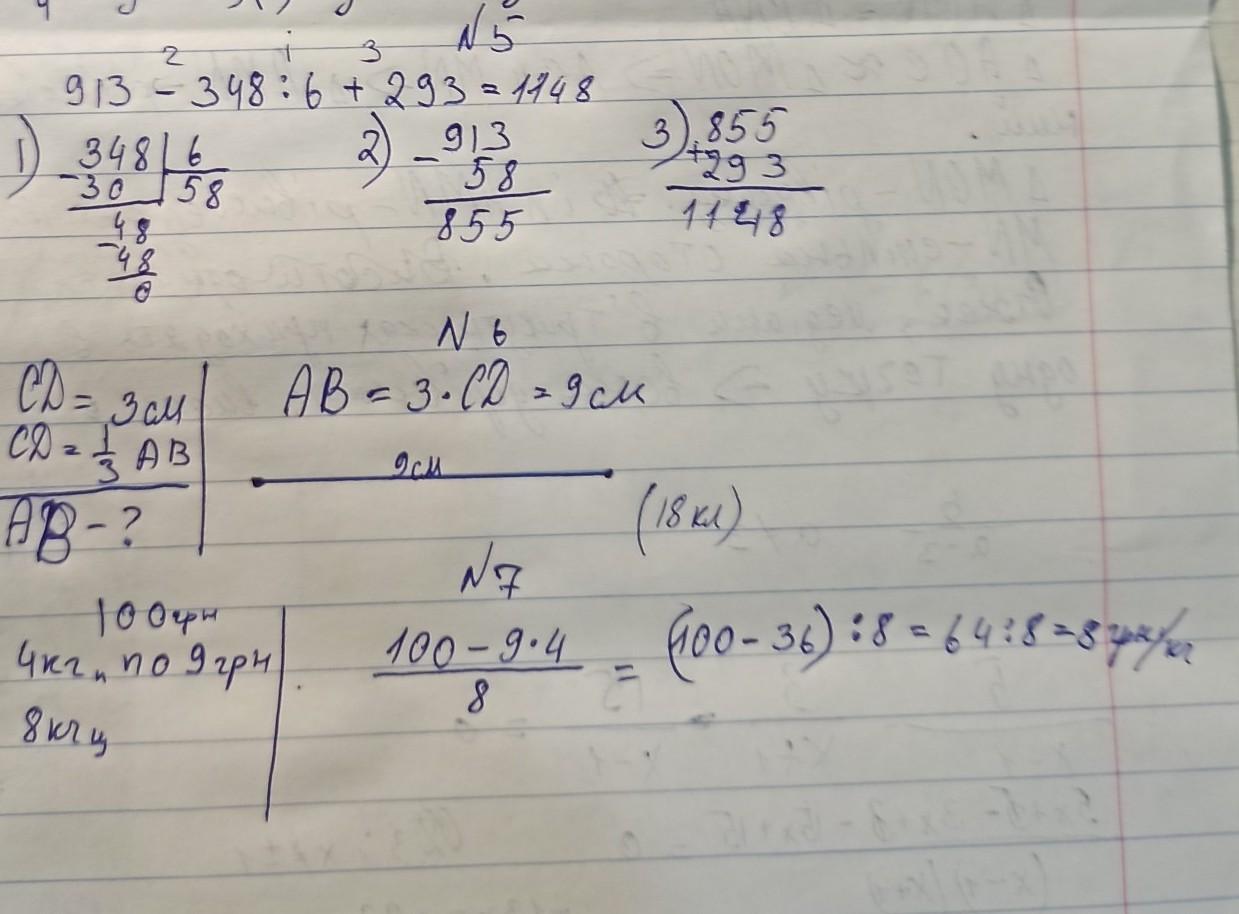 N 5
2 1 3
913 - 348 : 6 + 293 = 1148
1) 348 | 6
- 30 | 58
48
- 48
0
2) 913
- 58
855
3) 855
+ 293
1148
N 6
CD = 3 см
CD = 1/3 AB
AB - ?
AB = 3 · CD = 9 см
9 см
(18 кл)
N 7
100 грн
4 кг п по 9 грн
8 кг ц
100 - 9 · 4 / 8 = (100 - 36) : 8 = 64 : 8 = 8 грн/кг